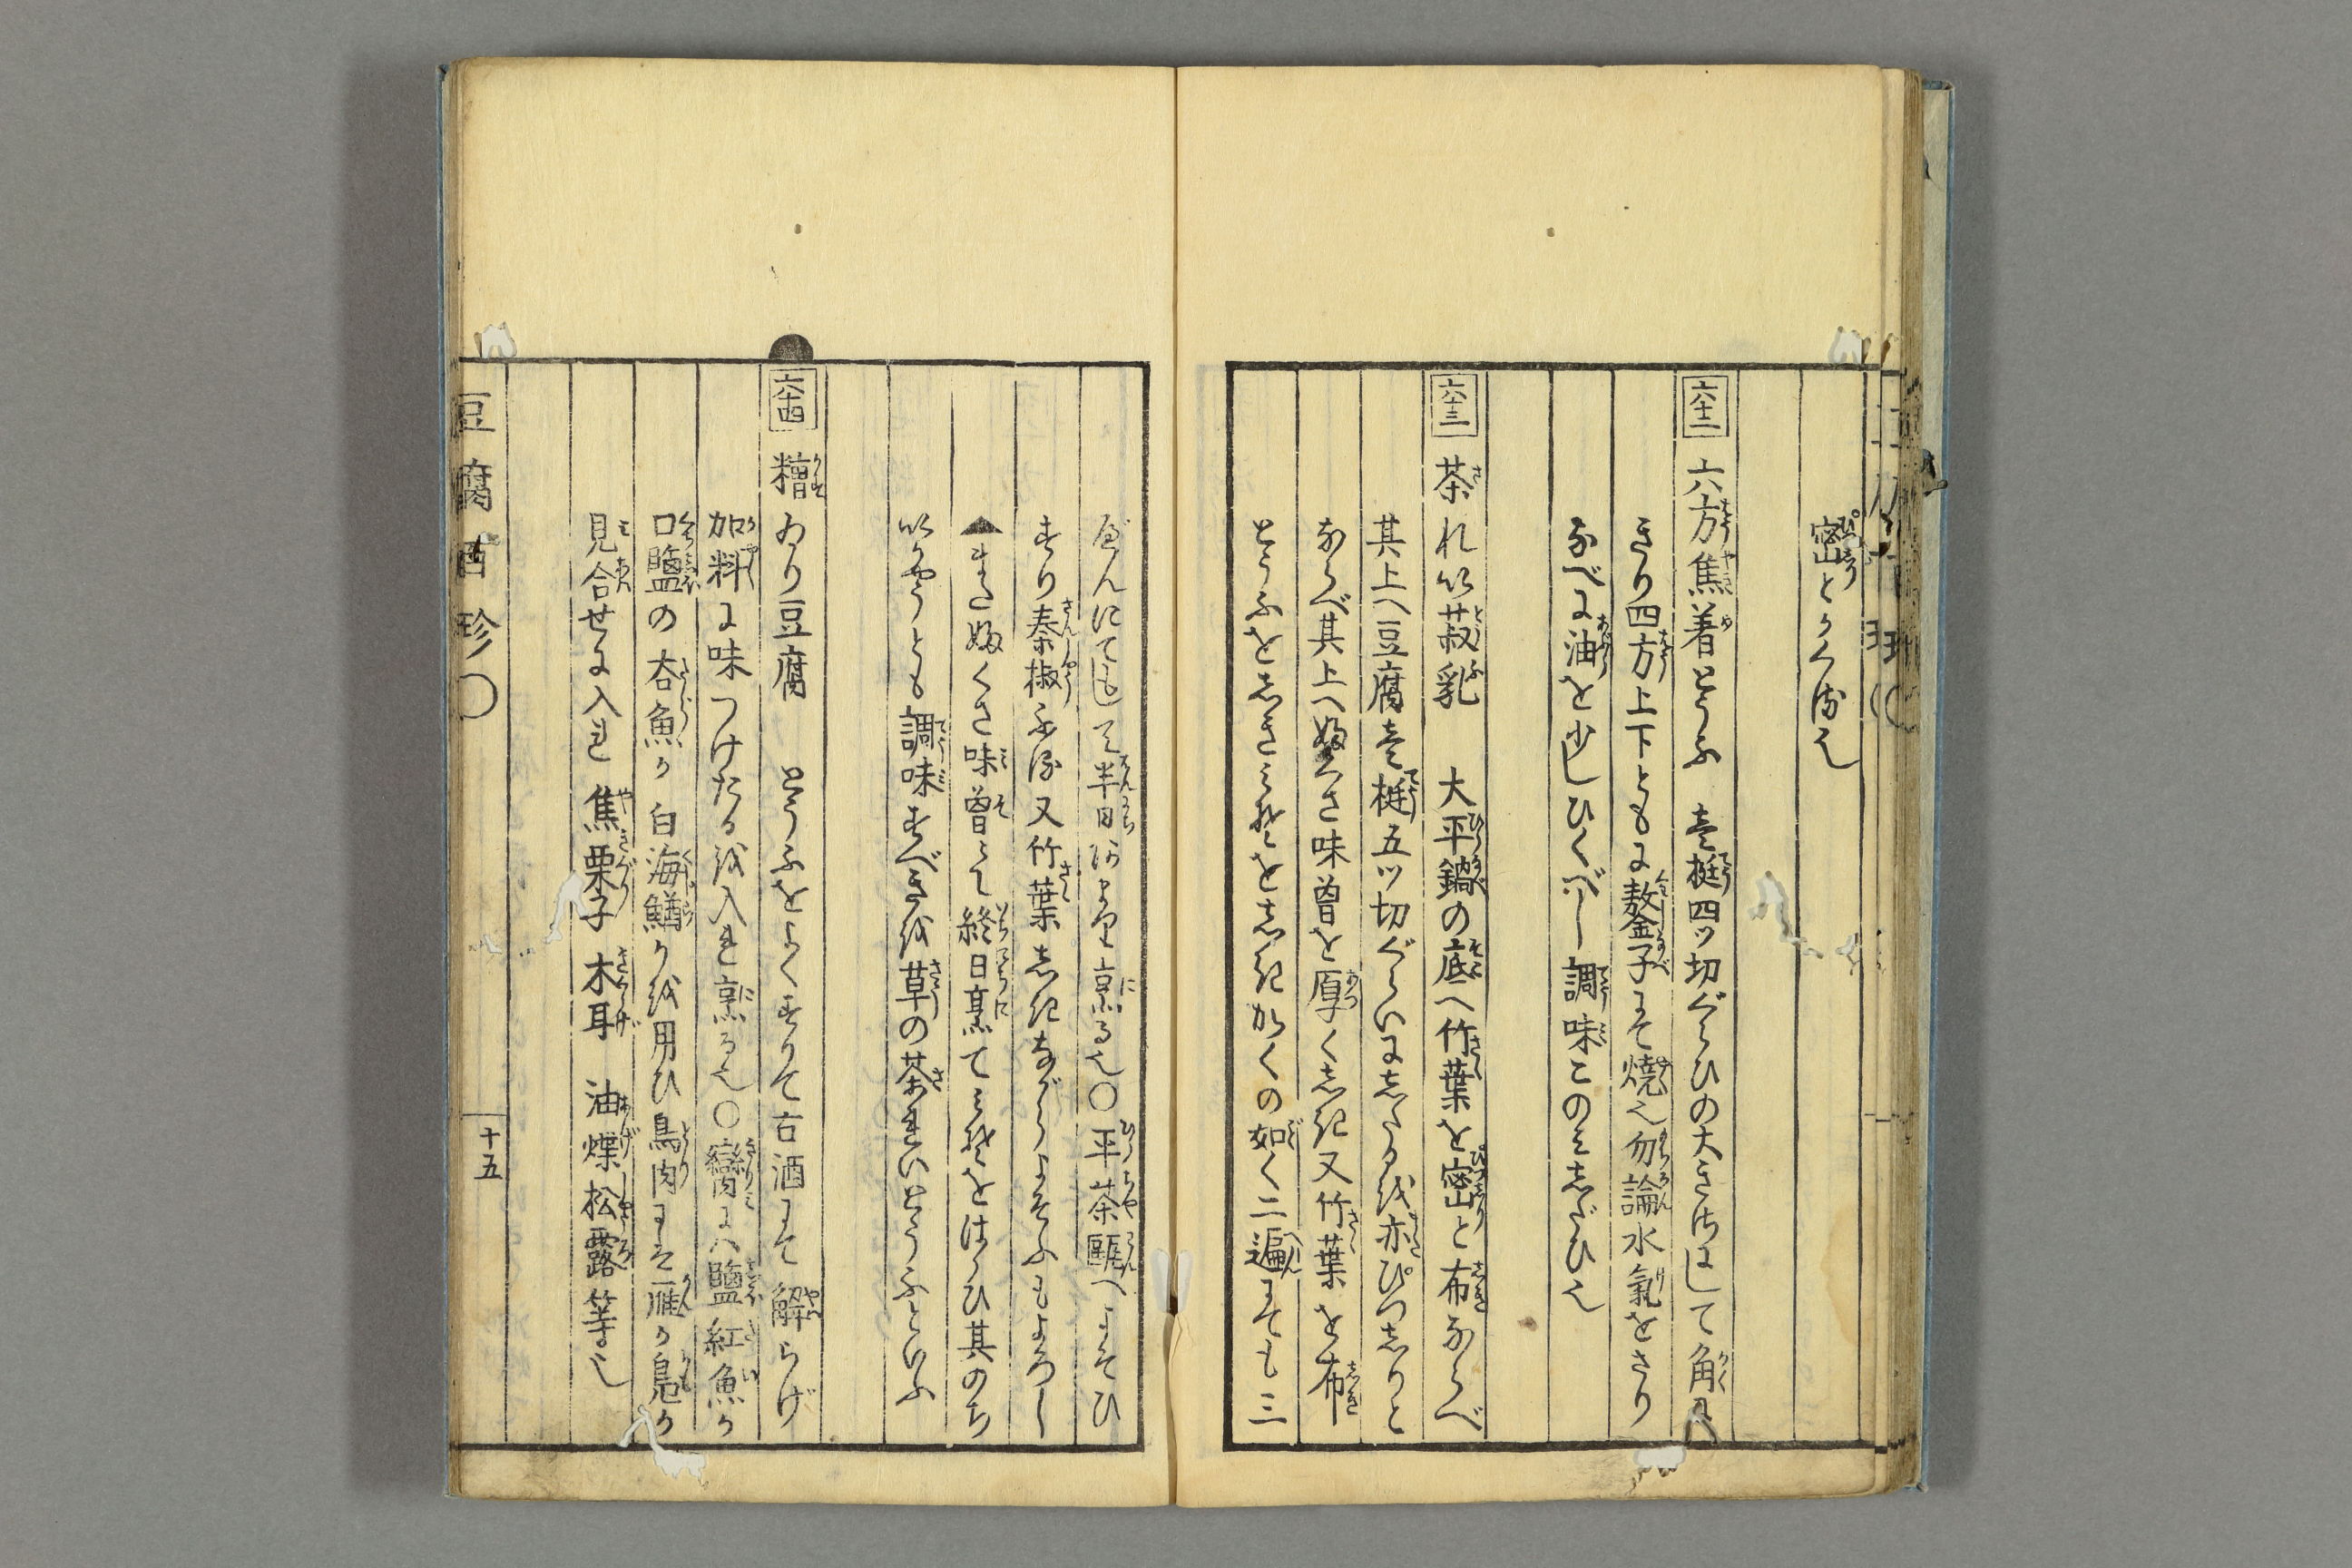 密とかくる也
六十二 六方焦着とうふ 壱挺四ツ切ぐらひの大きさにして角に
きり四方上下ともに熬金子にて焼也勿論水氣をさり
なべに油を少しひくべし調味このみしだひ也
六十三 茶れい菽乳 大平鍋の底へ竹葉を密と布ならべ
其上へ豆腐壱挺五ツ切ぐらいにしたるを亦ぴつしりと
ならべ其上へぬくさ味曽を厚くしき又竹葉を布
とうふをしきみそをしきかくの如く二遍にても三
べんにても して半日 烹る也〇平茶甌へよそひ
すり秦椒ふる又竹葉しきながらよそふもよろし
▲またぬくさ味曽にて終日烹てみそをはらひ其のち
いかやうとも調味すべきを草の茶れいとうふといふ
六十四 糟いり豆腐 とうふをよくすりて古酒にて解らげ
加料に味つけたるを入れ烹る也〇臠には鹽紅魚か
口鹽の杏魚か白海鰌かを用ひ鳥肉にては雁か鳧か
見合せに入れ焦栗子木耳 油煠松露等よし
豆腐百珍〇
十五